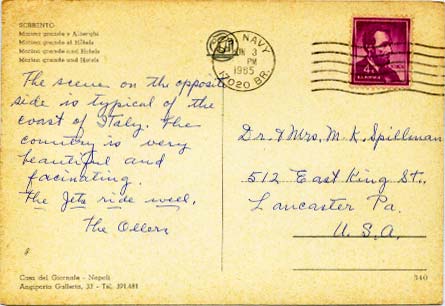 SORRENTO
Marina grande e Alberghi
Marina grande et Hôtels
Marina grande and Hotels
Marina grande und Hotels
NAVY
3
PM
1965
17020 BR.
4¢
The scene on the opposite
side is typical of the
coast of Italy. The
country is very
beautiful and
facinating.
The Jets ride well.
The Ollers
Dr. & Mrs. M. K. Spillman
512 East King St.,
Lancaster Pa.
U. S. A.
Casa del Giornale - Napoli
Angiporto Galleria, 33 - Tel. 391.481
340